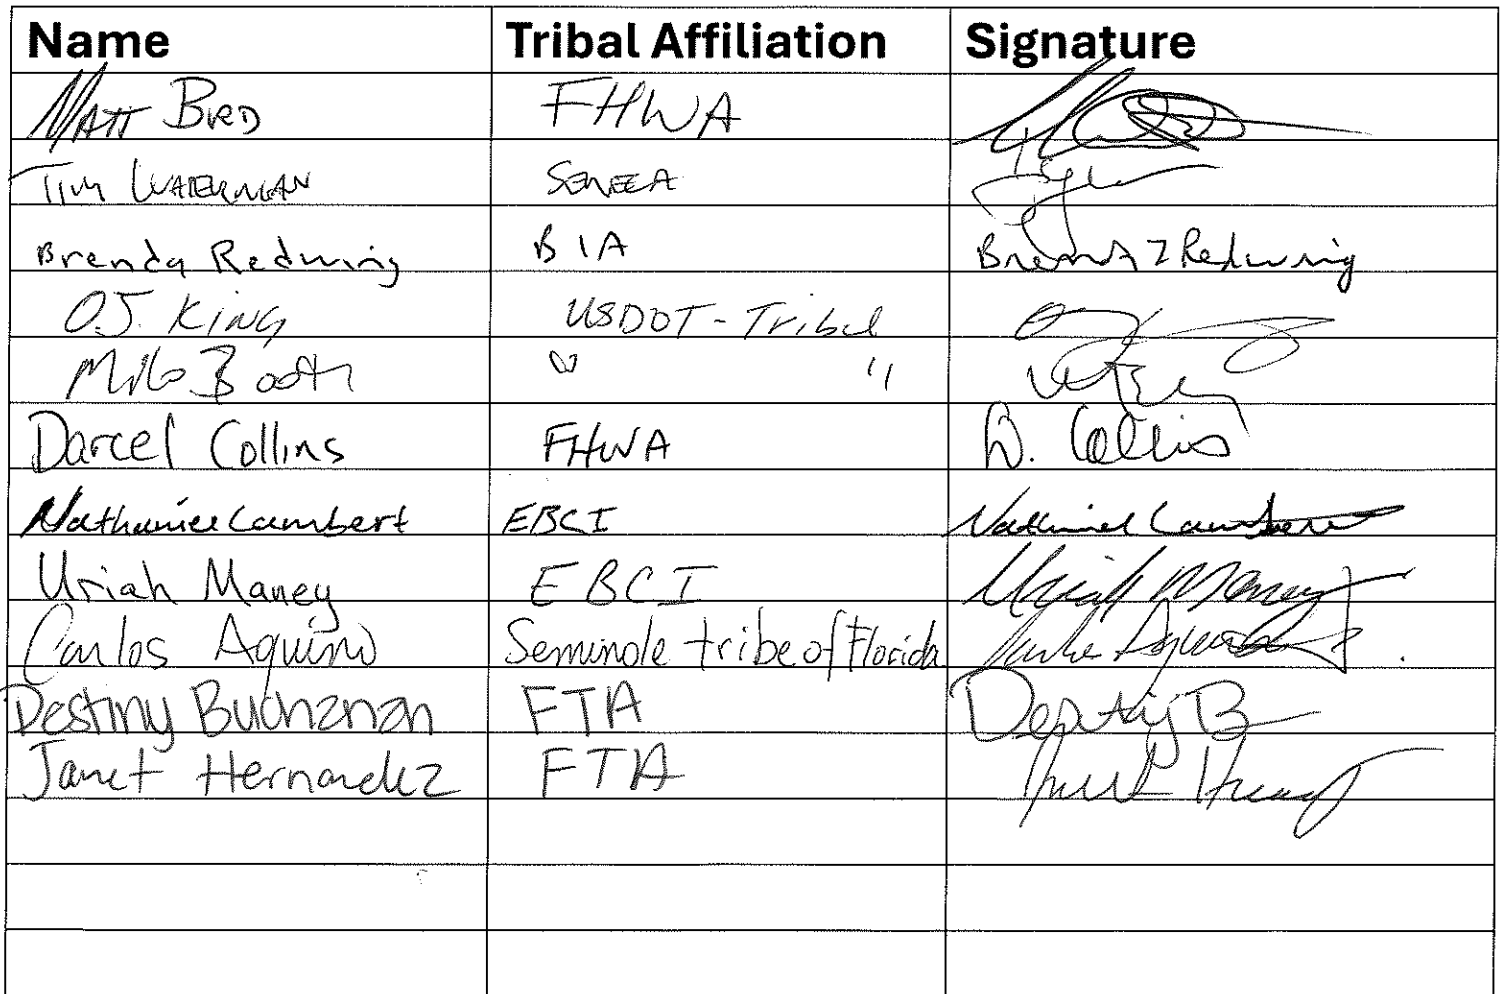 Name Tribal Affiliation Signature
MATT BIRD FHWA
TIM WATERMAN SENECA
Brenda Redwing BIA Brenda Z Redwing
O.J. King USDOT-Tribal
Milo Booth " "
Darcel Collins FHWA D. Collins
Nathaniel Lambert EBCI Nathaniel Lambert
Uriah Maney EBCI Uriah Maney
Carlos Aquino Seminole tribe of Florida
Destiny Buchanan FTA Destiny B
Janet Hernandez FTA